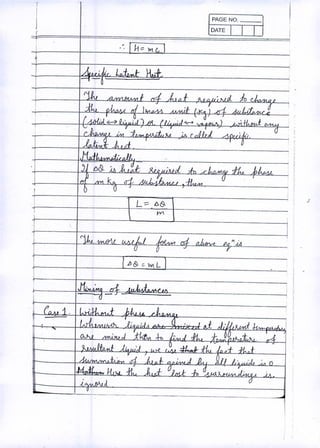 PAGE NO.
DATE
∴ H = mc
Specific Latent Heat.
The amount of heat required to change
the phase of 1 mass unit (kg) of substance
(solid ↔ liquid) or (liquid ↔ vapour) without any
change in temperature is called specific
latent heat.
Mathematically
If ΔQ is heat required to change the phase
of m kg of substance, then
L = ΔQ
m
The more useful form of above eqⁿ is
ΔQ = mL
Mixing of substances
Case 1. Without phase change
Whenever liquids are mixed at different temperature
are mixed then to find the temperature of
resultant liquid, we use that the fact that
summation of heat gained by all liquids is 0
Here the heat lost to surroundings is
ignored.